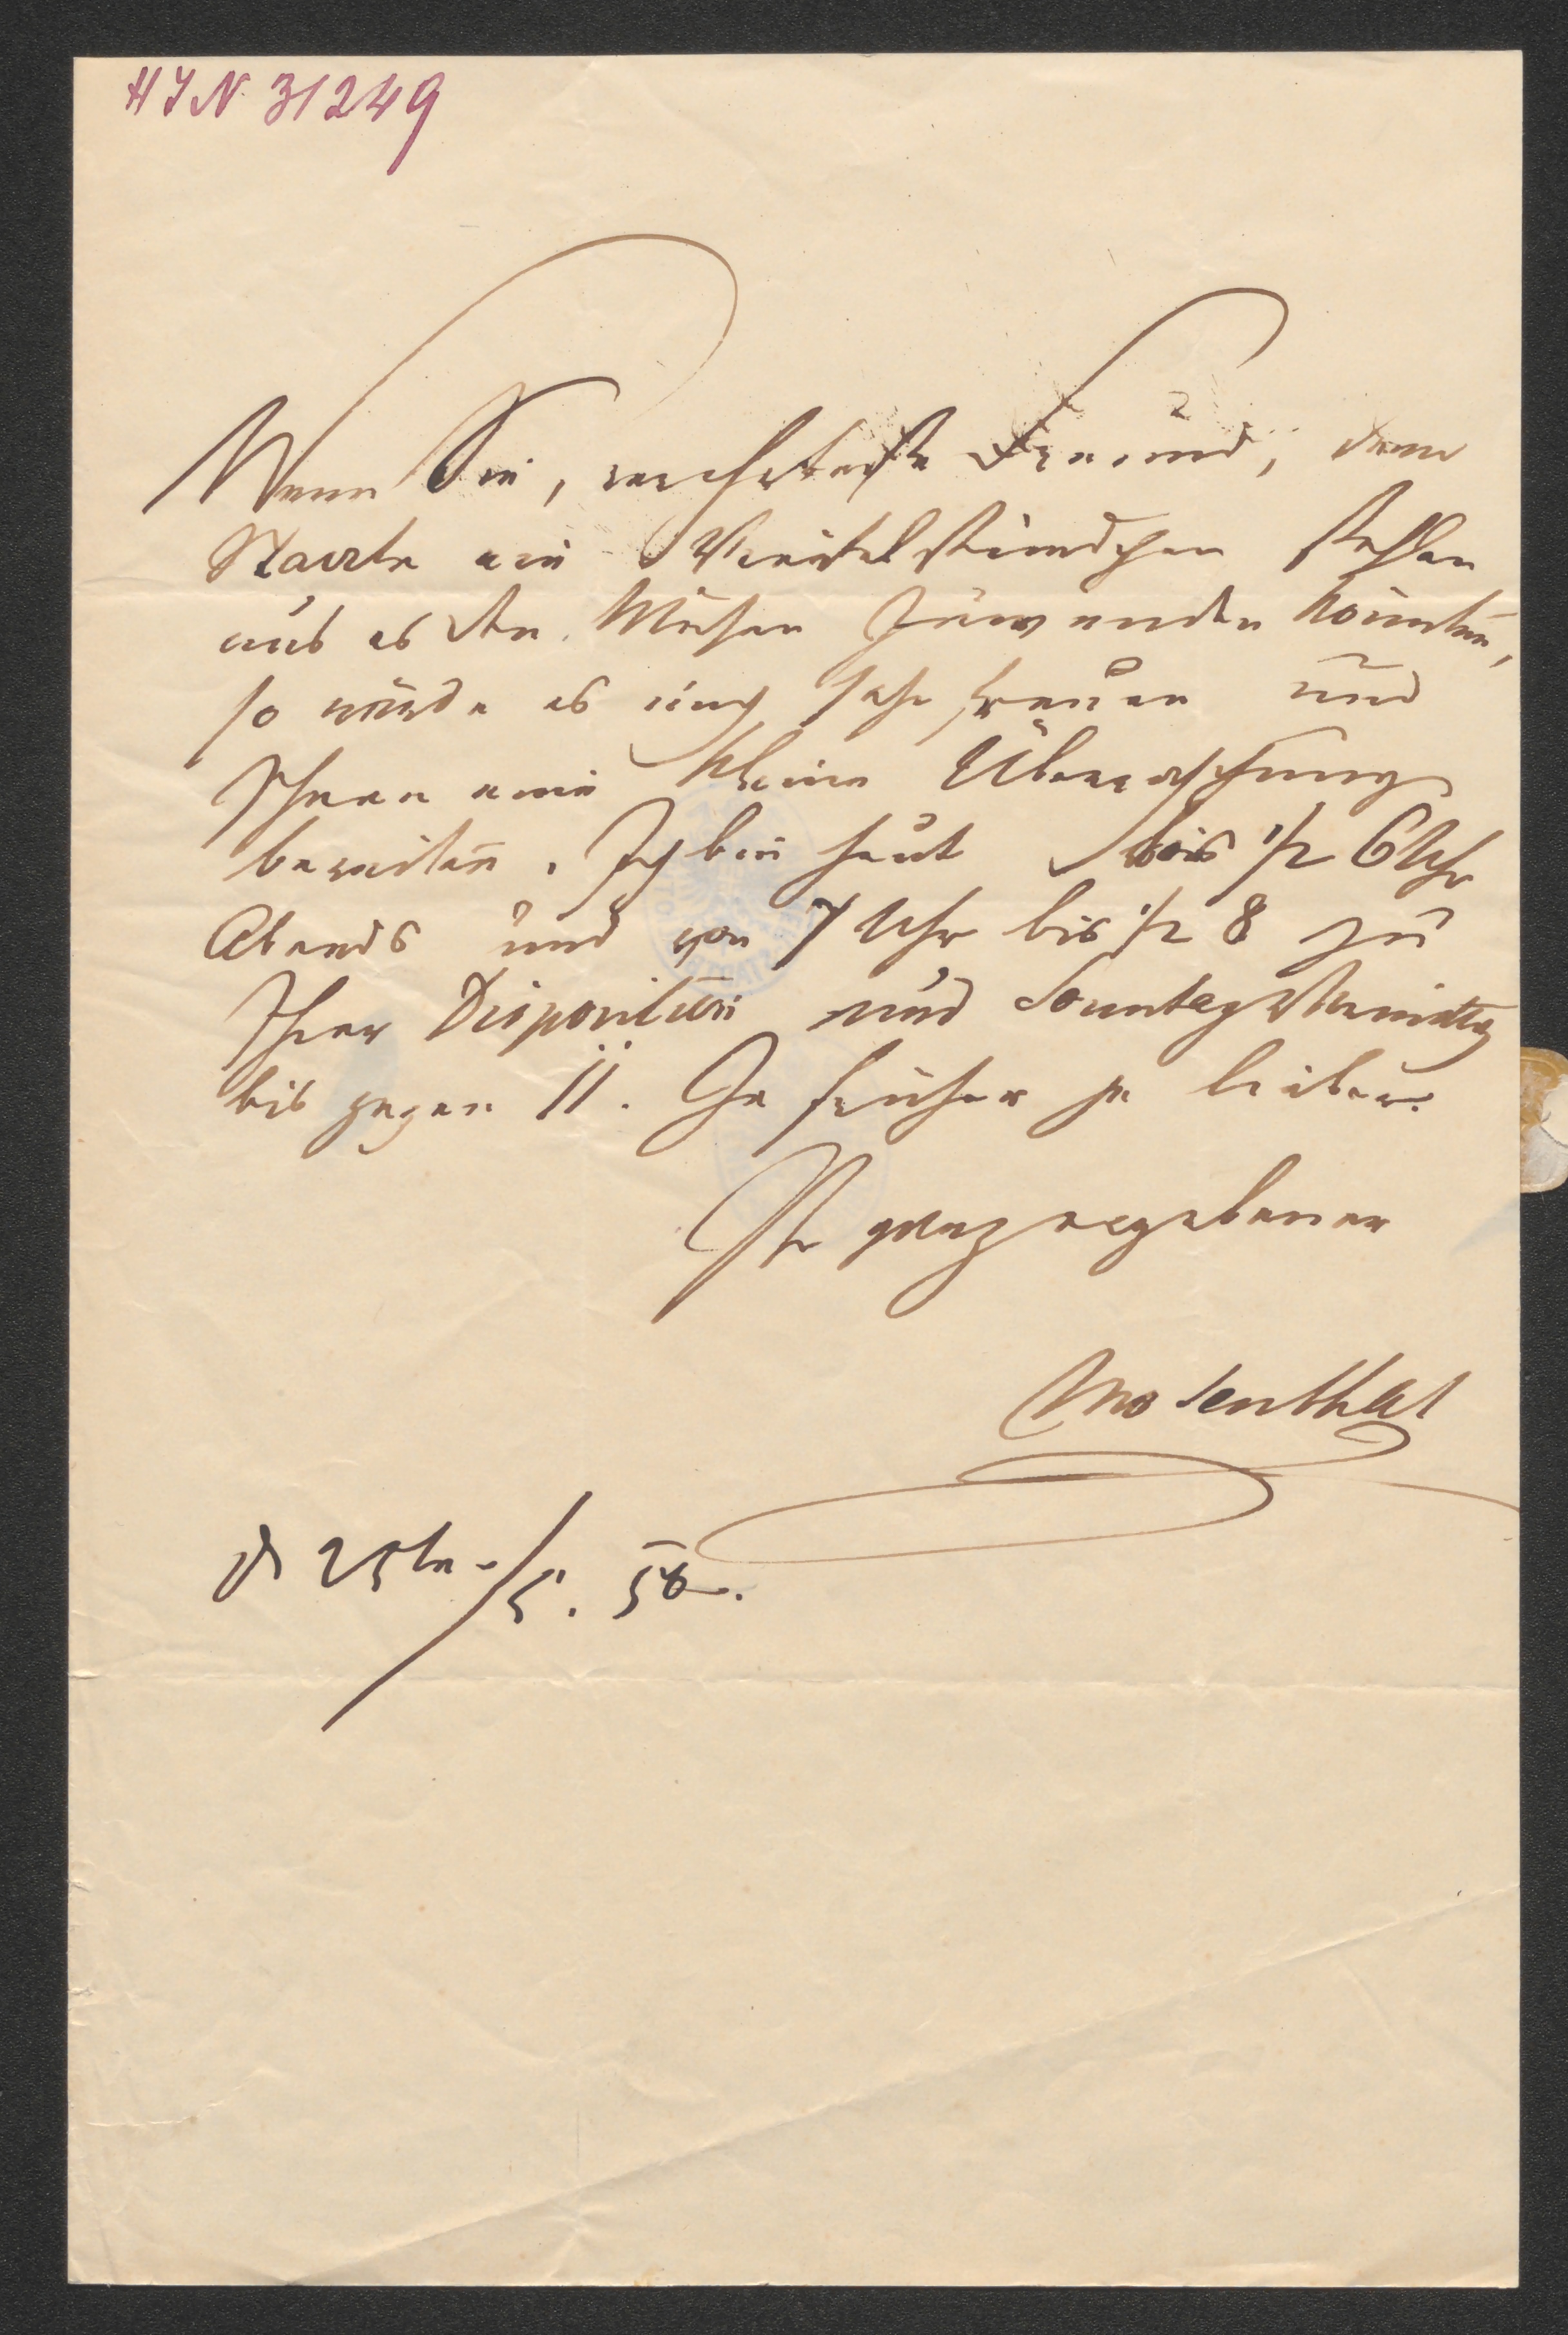 HIN 31249
Wenn Sie, verehrtester Freund, dem
Staate ein Viertelstündchen stehlen
und es den Musen zuwenden könnten,
so würde es mich sehr freuen und
Ihnen eine kleine Überraschung
bereiten. Ich bin heut bis 1/2 6 Uhr
Abends und von 7 Uhr bis 1/2 8 zu
Ihrer Disposition und Sonntag Vormittag
bis gegen 11. Je früher je lieber.
Ihr ganz ergebener
Mosenthal
d 25ten/5. 58.